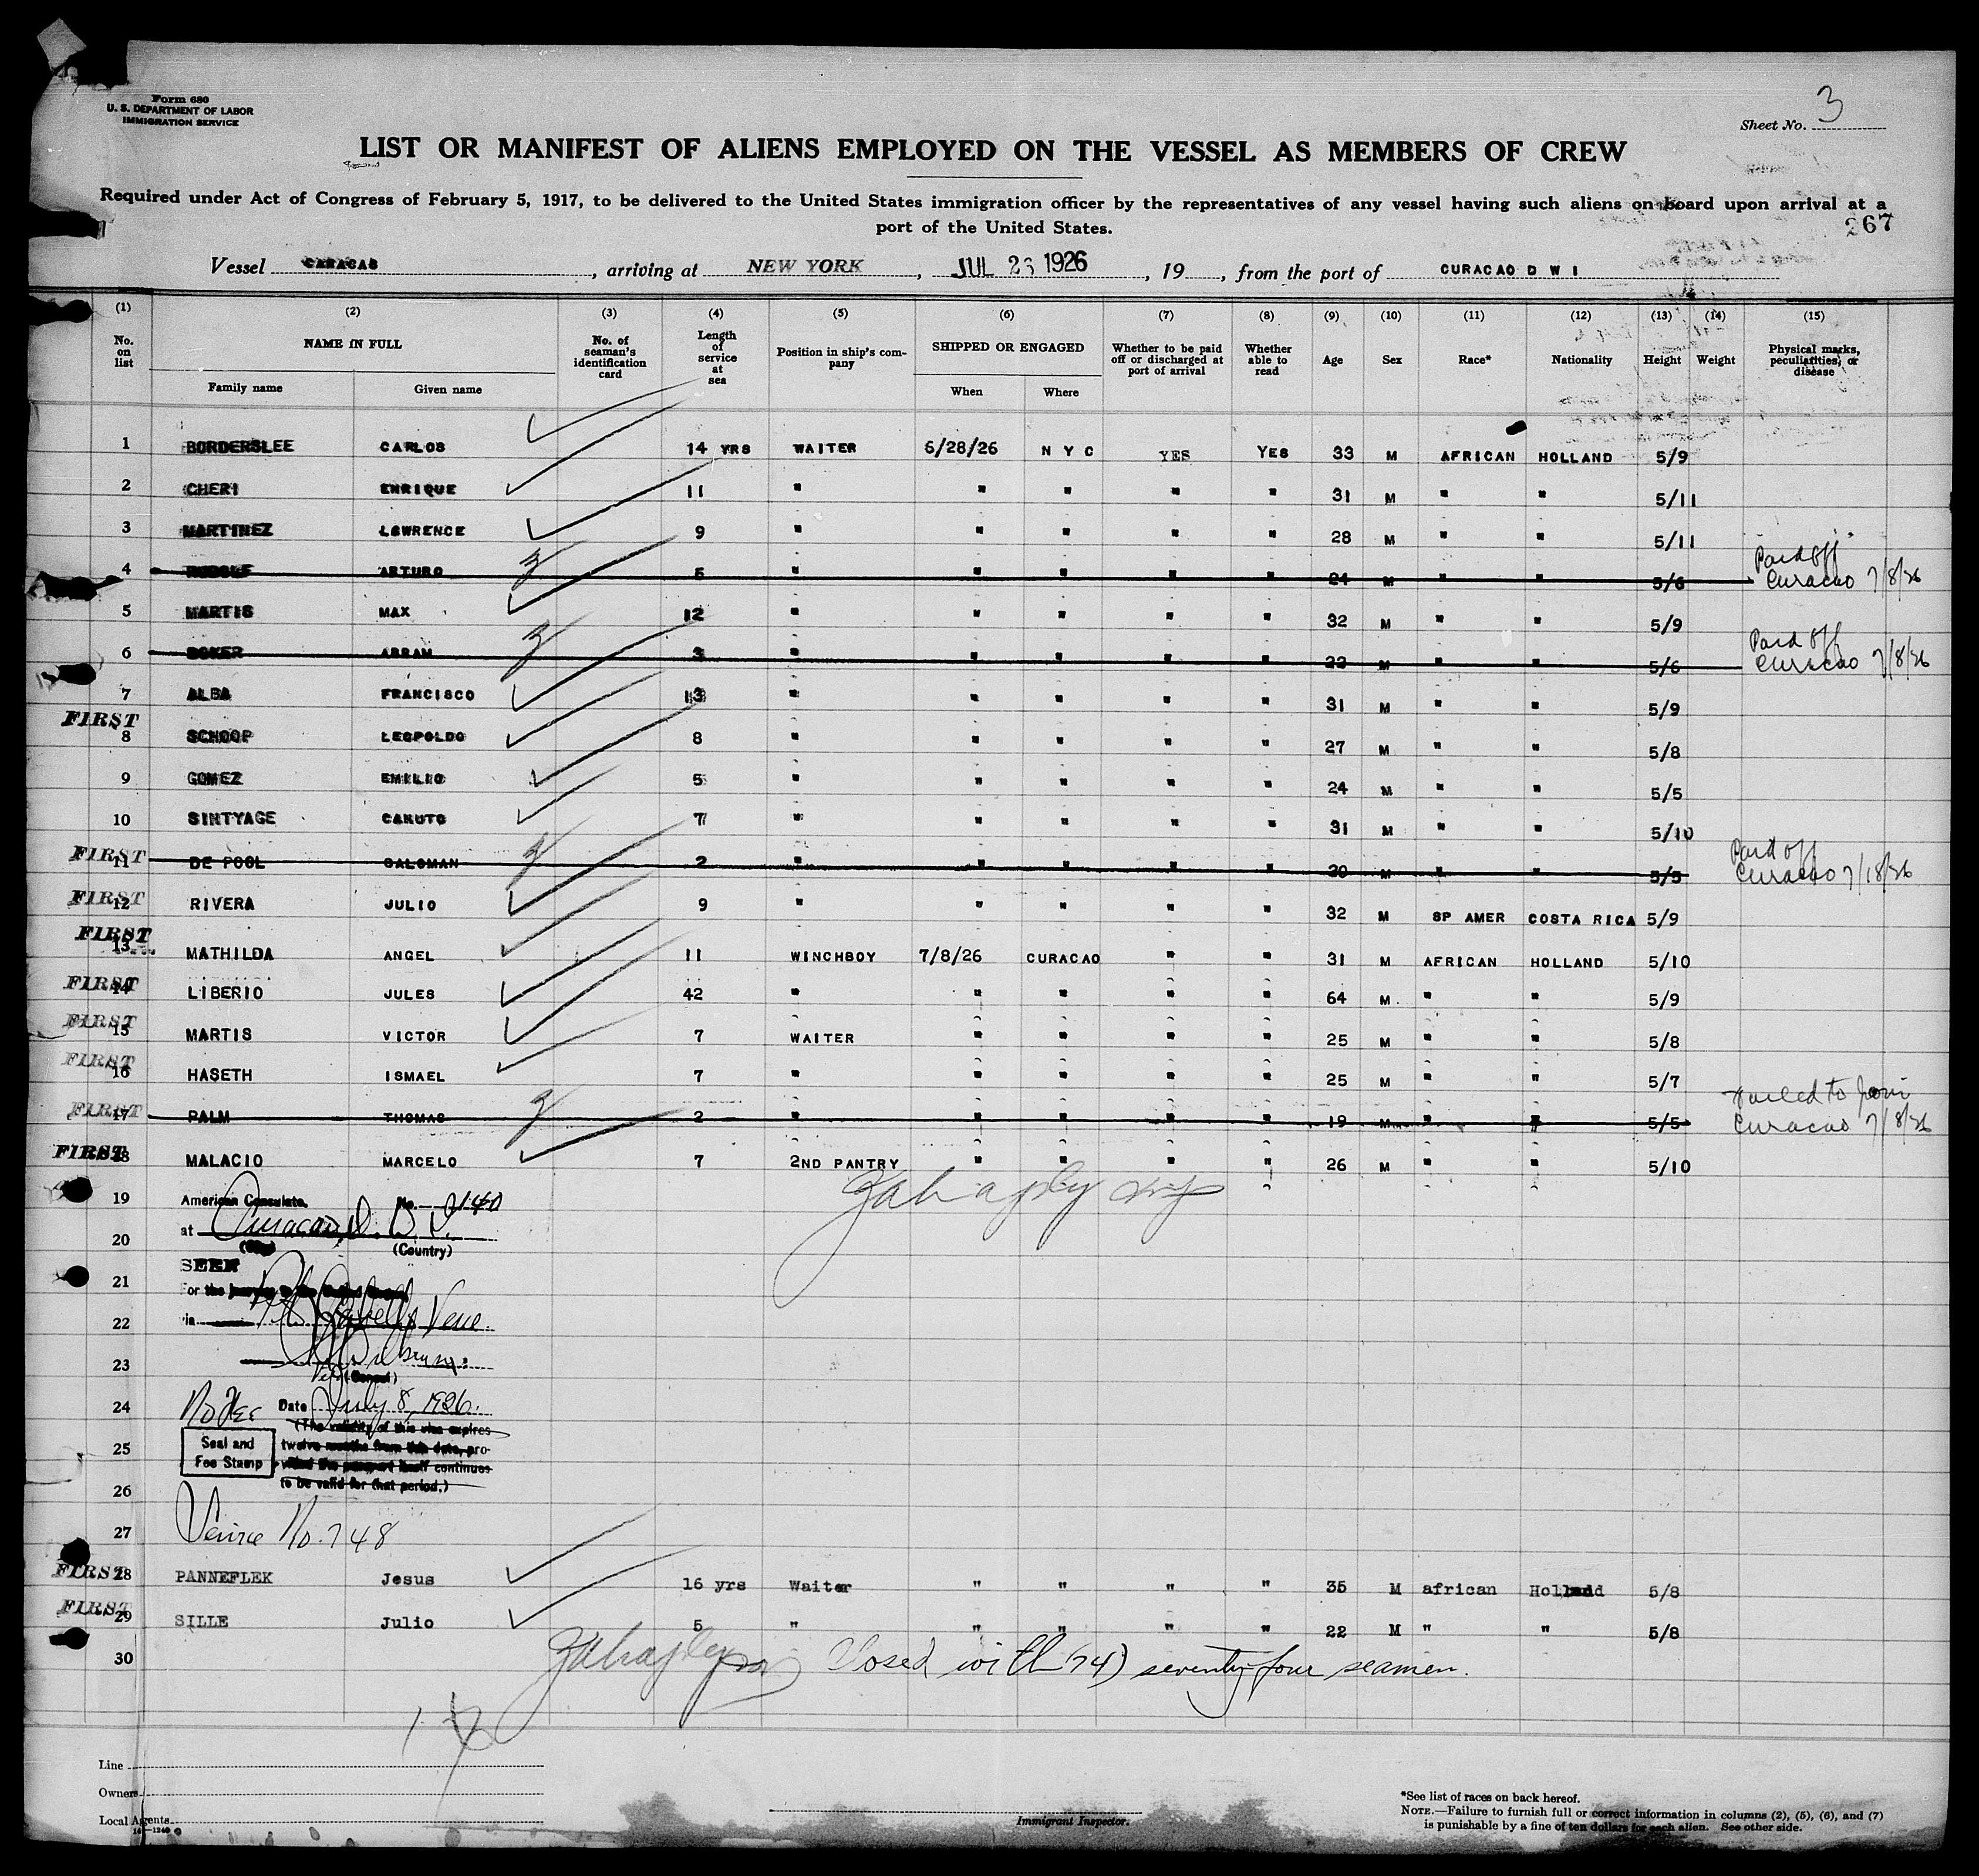 Form 680
U. S. DEPARTMENT OF LABOR
IMMIGRATION SERVICE
Sheet No. 3
LIST OR MANIFEST OF ALIENS EMPLOYED ON THE VESSEL AS MEMBERS OF CREW
Required under Act of Congress of February 5, 1917, to be delivered to the United States immigration officer by the representatives of any vessel having such aliens on board upon arrival at a
port of the United States.
267
Vessel CARACAS, arriving at NEW YORK, JUL 23 1926, 19, from the port of CURACAO D W I
(1) (2) (3) (4) (5) (6) (7) (8) (9) (10) (11) (12) (13) (14) (15)
No. on list NAME IN FULL Family name Given name No. of seaman's identification card Length of service at sea Position in ship's company SHIPPED OR ENGAGED When Where Whether to be paid off or discharged at port of arrival Whether able to read Age Sex Race* Nationality Height Weight Physical marks, peculiarities, or disease
1 BORDERSLEE CARLOS 14 YRS WAITER 6/28/26 N Y C YES YES 33 M AFRICAN HOLLAND 5/9
2 CHERI ENRIQUE 11 " " " " " 31 M " " 5/11
3 MARTINEZ LAWRENCE 9 " " " " " 28 M " " 5/11
4 ARTURO 5 " " " " " 24 M " " 5/6 Paid off Curacao 7/8/26
5 MARTIS MAX 12 " " " " " 32 M " " 5/9
6 ABRAM 3 " " " " " 22 M " " 5/6 Paid off Curacao 7/8/26
7 ALBA FRANCISCO 13 " " " " " 31 M " " 5/9
FIRST 8 SCHOOP LEOPOLDO 8 " " " " " 27 M " " 5/8
9 GOMEZ EMILIO 5 " " " " " 24 M " " 5/5
10 SINTYAGE CANUTO 7 " " " " " 31 M " " 5/10
FIRST 11 DE POOL SALOMAN 2 " " " " " 20 M " " 5/5 Paid off Curacao 7/18/26
FIRST 12 RIVERA JULIO 9 " " " " " 32 M SP AMER COSTA RICA 5/9
FIRST 13 MATHILDA ANGEL 11 WINCHBOY 7/8/26 CURACAO " " 31 M AFRICAN HOLLAND 5/10
FIRST 14 LIBERIO JULES 42 " " " " " 64 M " " 5/9
FIRST 15 MARTIS VICTOR 7 WAITER " " " " 25 M " " 5/8
FIRST 16 HASETH ISMAEL 7 " " " " " 25 M " " 5/7
FIRST 17 PALM THOMAS 2 " " " " " 19 M " " 5/5 Failed to join Curacao 7/8/26
FIRST 18 MALACIO MARCELO 7 2ND PANTRY " " " " 26 M " " 5/10
19 American Consulate. No. 2140
20 at Curacao, D. W. I.
(City) (Country)
21 SEEN
For the journey to the United States
22 via Pto Cabello Vene.
23 Vice (Consul)
24 No Fee Date July 8, 1926.
(The validity of this visa expires
25 Seal and Fee Stamp twelve months from this date, pro-
vided the passport itself continues
26 to be valid for that period.)
27 Service No. 748
FIRST 28 PANNEFLEK Jesus 16 yrs Waiter " " " " 35 M african Holland 5/8
FIRST 29 SILLE Julio 5 " " " " " 22 M " " 5/8
30 Closed with (74) seventy-four seamen.
Line
Owners
Local Agents
Immigrant Inspector.
*See list of races on back hereof.
NOTE.—Failure to furnish full or correct information in columns (2), (5), (6), and (7)
is punishable by a fine of ten dollars for each alien. See other side.